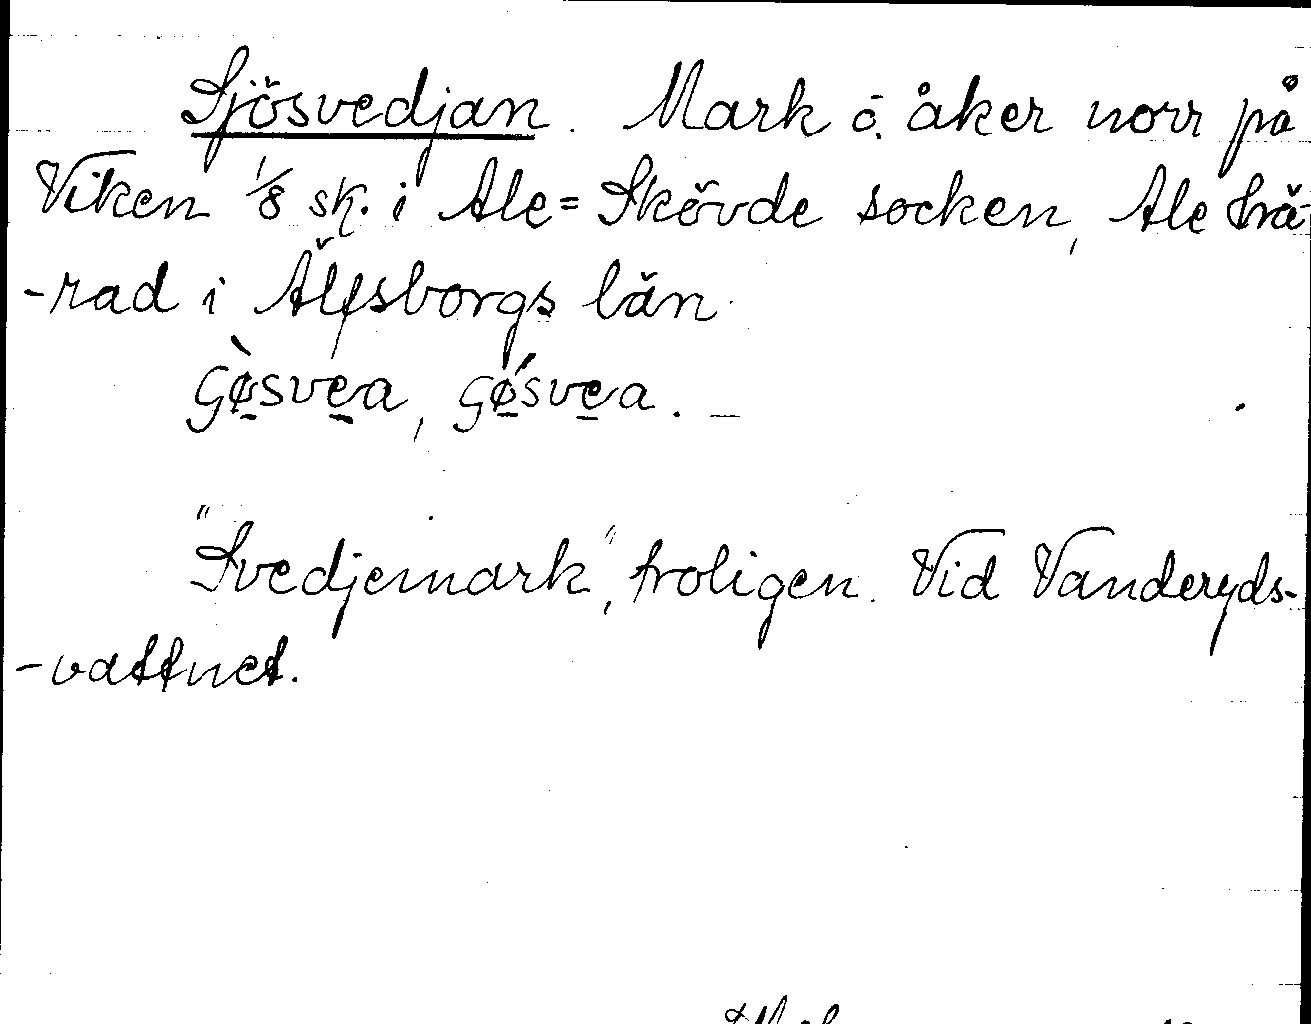 Sjösvedjan. Mark o. åker norr på
Viken 1/8 sk. i Ale=Skövde socken, Ale hä-
-rad i Älfsborgs län.
Gø̀svea, Gǿsvea. —
"Svedjemark", troligen. Vid Vanderyds-
-vattnet.